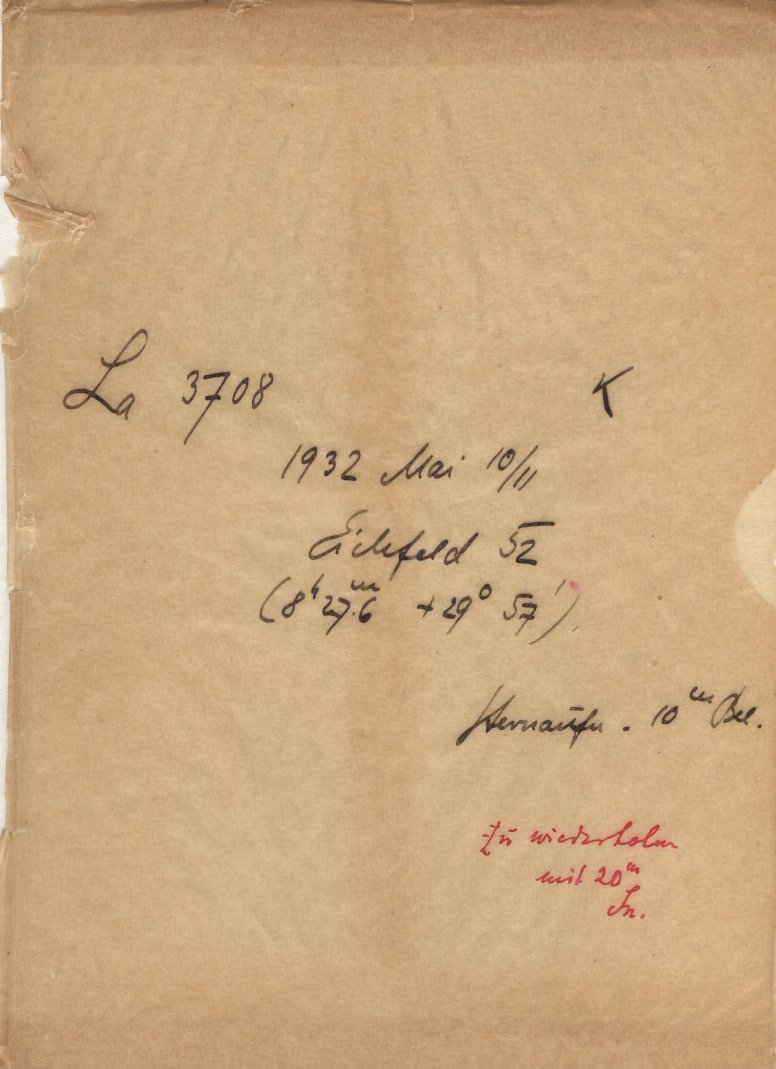 La 3708 K
1932 Mai 10/11
Eichfeld 52
(8ʰ 27ᵐ.6 +29° 57')
Sternaufn. 10ᵐ Bel.
zu wiederholen
mit 20ᵐ